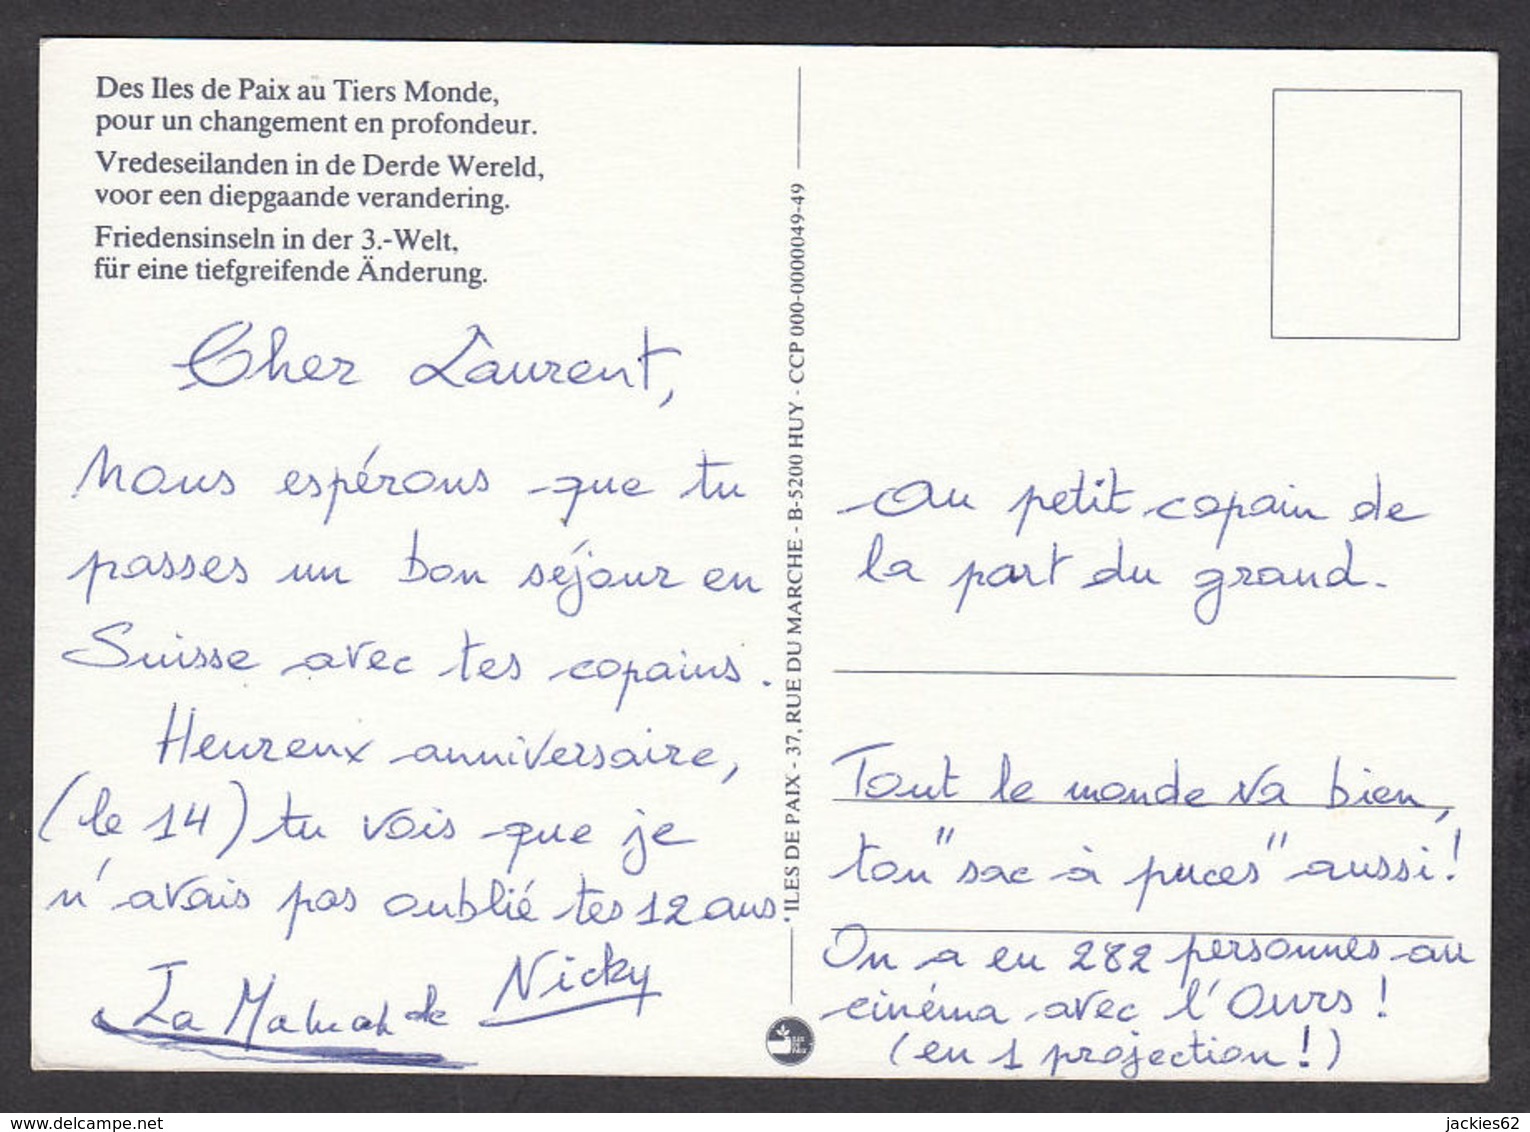 Des Iles de Paix au Tiers Monde,
pour un changement en profondeur.
Vredeseilanden in de Derde Wereld,
voor een diepgaande verandering.
Friedensinseln in der 3.-Welt,
für eine tiefgreifende Änderung.
Cher Laurent,
Nous espérons que tu
passes un bon séjour en
Suisse avec tes copains.
Heureux anniversaire,
(le 14) tu vois que je
n'avais pas oublié tes 12 ans.
Nicky
La
ILES DE PAIX - 37, RUE DU MARCHE - B-5200 HUY - CCP 000-0000049-49
Au petit copain de
la part du grand.
Tout le monde va bien,
ton "sac à puces" aussi!
On a eu 282 personnes au
cinéma avec l'Ours!
(en 1 projection!)
jackies62